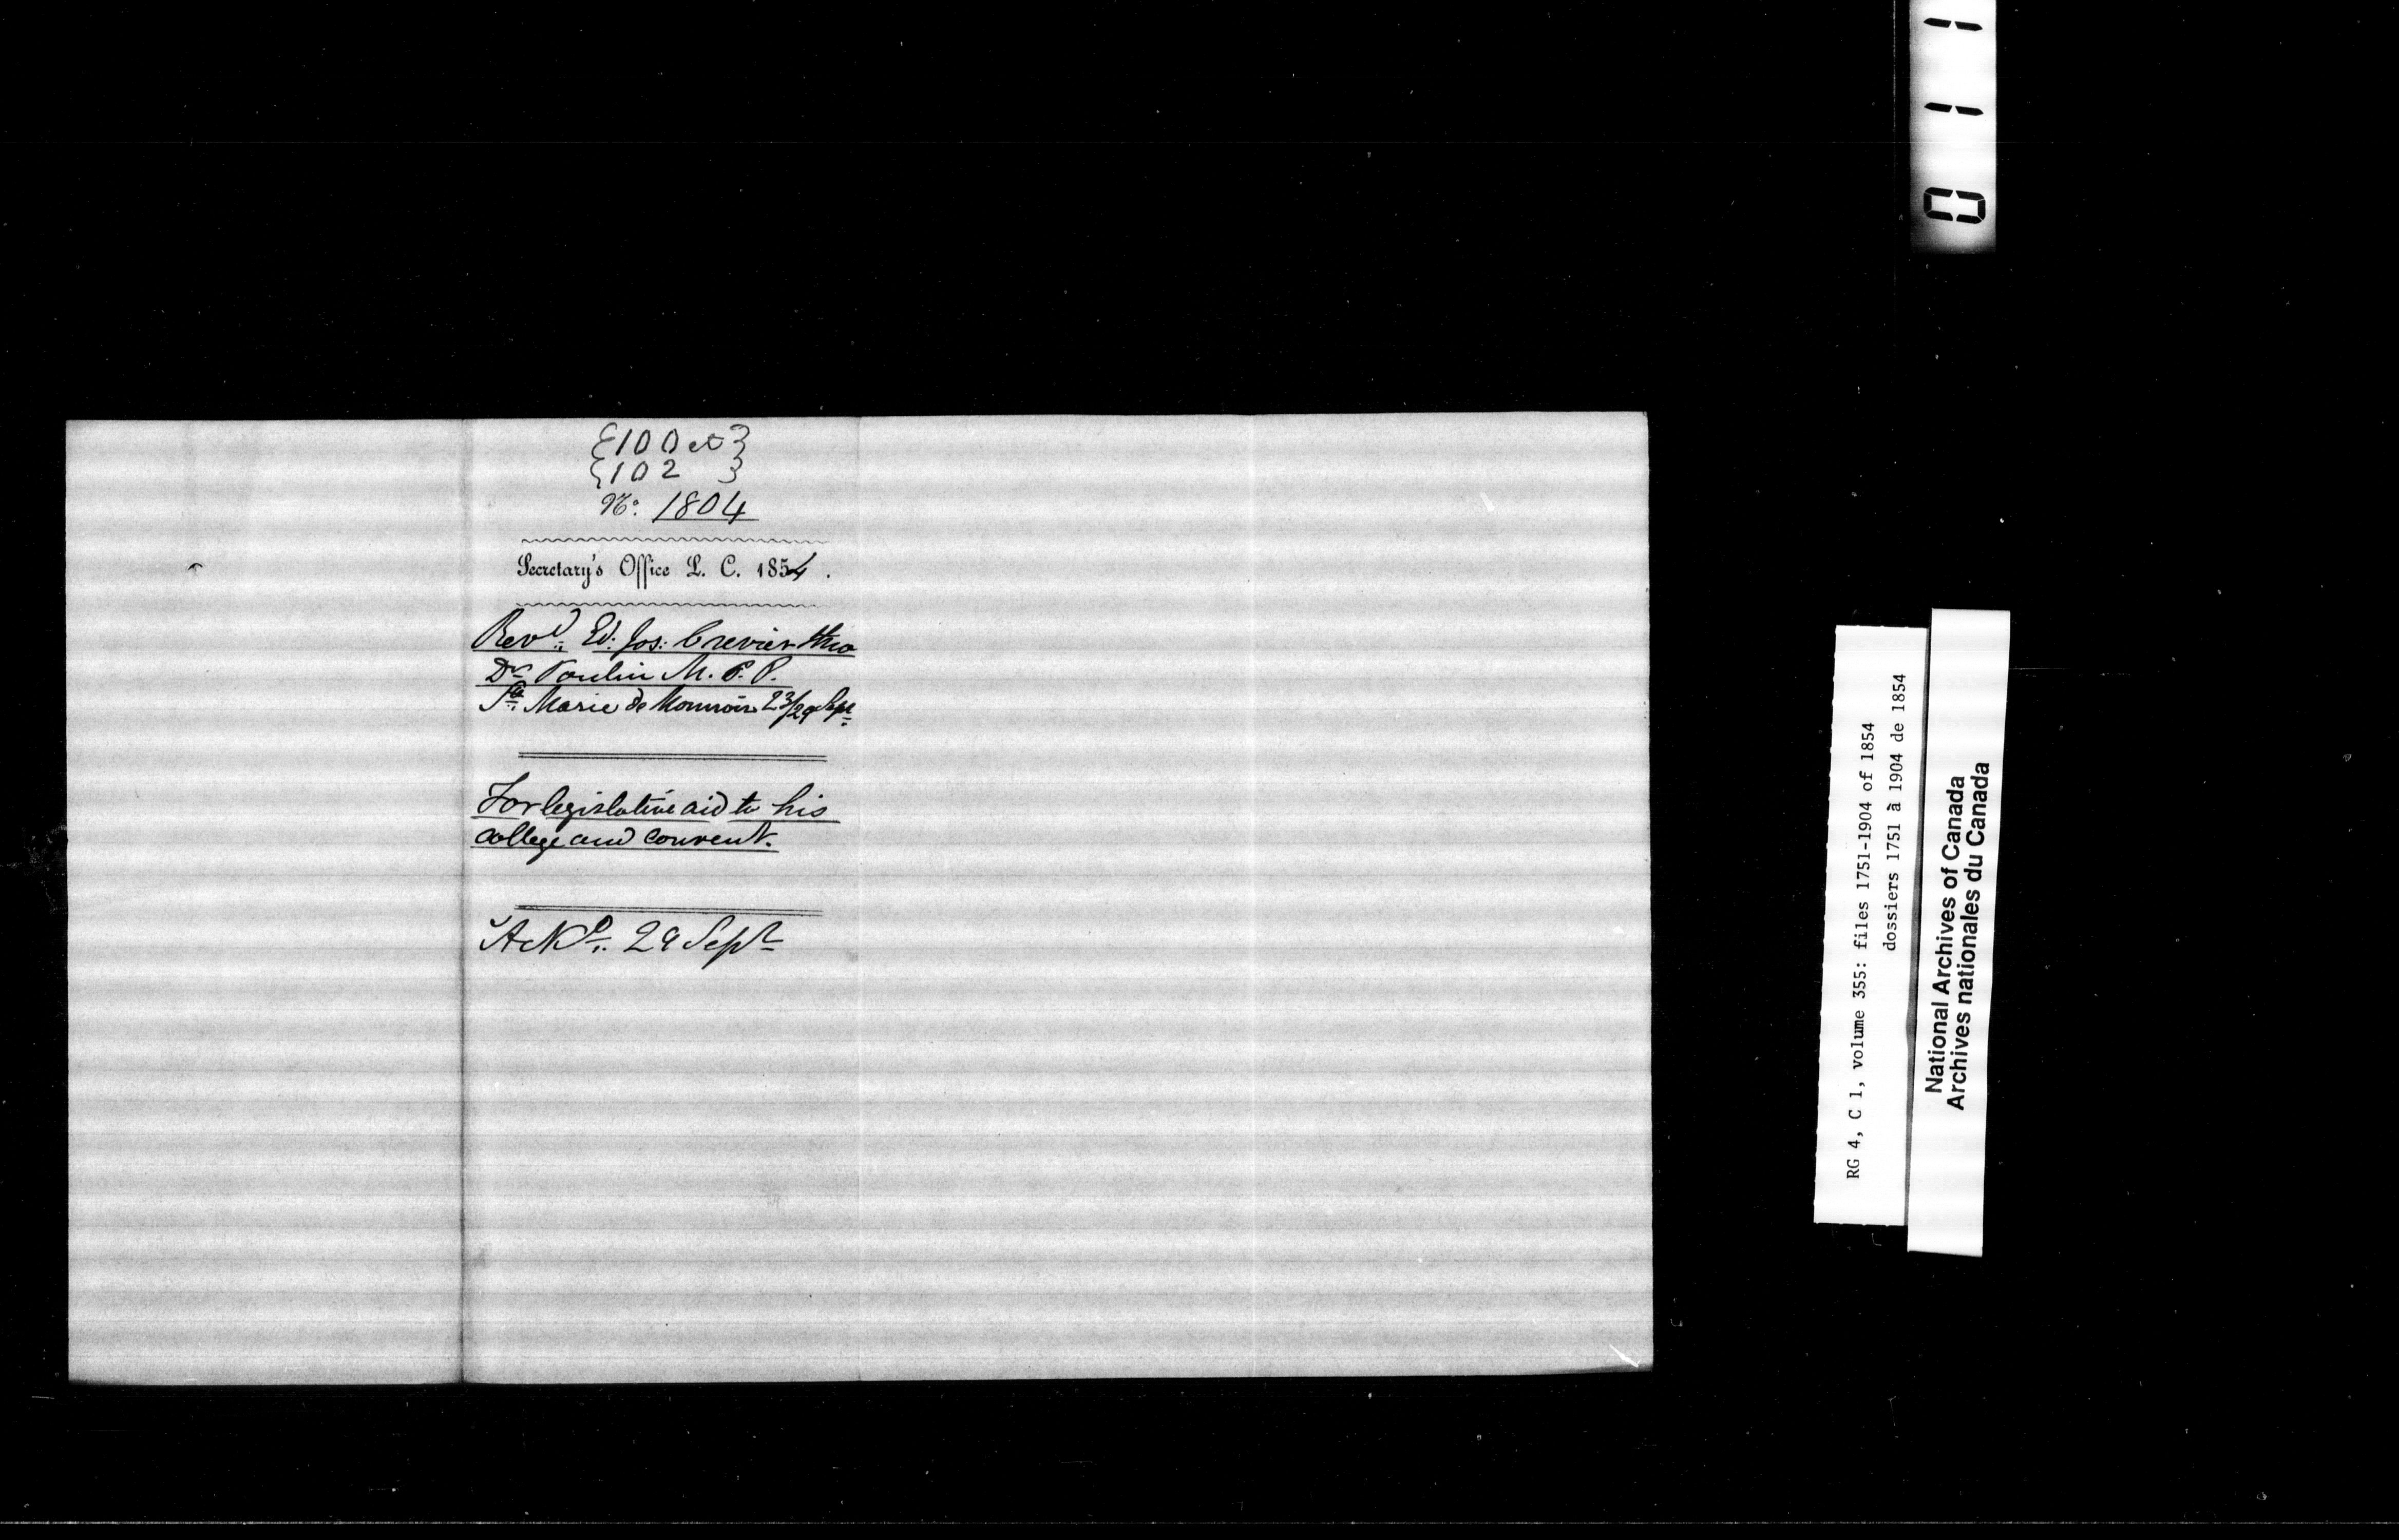 {100 et}
{102 }
No. 1804
Secretary's Office L. C. 1854.
Revd. Ed. Jos: Crevier thro
Dr Poulin M. P. P.
Ste. Marie de Monnoir 23/29 Sept
For legislative aid to his
college and convent.
Ackd. 29 Sept
0111
RG 4, C 1, volume 355: files 1751-1904 of 1854
dossiers 1751 à 1904 de 1854
National Archives of Canada
Archives nationales du Canada